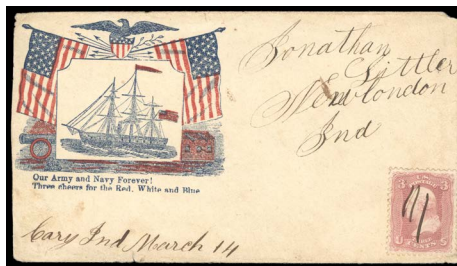 Our Army and Navy Forever!
Three cheers for the Red, White and Blue
Jonathan
Littler
New London
Ind
3 3
U S
Cary Ind March 14